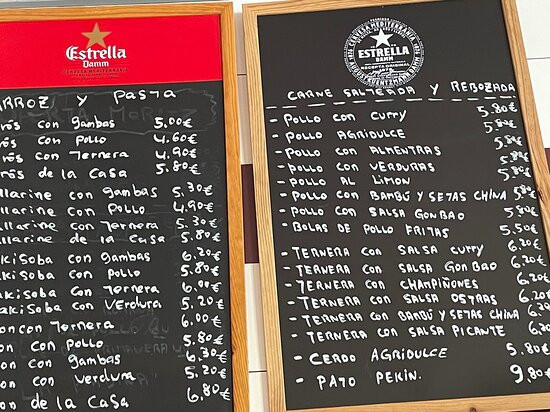 Estrella
Damm
CERVEZA MEDITERRÁNEA
ARROZ Y PASTA
rrós con gambas 5.00€
rrós con pollo 4.60€
rrós con Ternera 4.90€
rrós de la Casa 5.80€
llarine con gambas 5.30€
llarine con Pollo 4.90€
llarine con Ternera 5.30€
llarine de la Casa 5.80€
akisoba con gambas 6.20€
akisoba con pollo 5.80€
akisoba con Ternera 6.00€
akisoba con Verdura 5.20€
on con Ternera 6.00€
on con pollo 5.80€
on con gambas 6.30€
on con verdura 5.20€
on de la Casa 6.80€
CERVEZA MEDITERRÁNEA
ESTRELLA
DAMM
RECEPTA ORIGINAL
1876
AUGUST KUENTZMANN DAMM
CARNE SALTEADA Y REBOZADA
- POLLO CON CURRY 5.80€
- POLLO AGRIDULCE 5.8€
- POLLO CON ALMENTRAS 5.8€
- POLLO CON VERDURAS 5.8€
- POLLO AL LIMON 5.8€
- POLLO CON BAMBÚ Y SETAS CHINA 5.8€
- POLLO CON SALSA GONBAO 5.80€
- BOLAS DE POLLO FRITAS 5.50€
- TERNERA CON SALSA CURRY 6.20€
- TERNERA CON SALSA GONBAO 6.20€
- TERNERA CON CHAMPIÑONES 6.20€
- TERNERA CON SALSA OSTRAS 6.20€
- TERNERA CON BAMBÚ Y SETAS CHINA 6.20€
- TERNERA CON SALSA PICANTE 6.20€
- CERDO AGRIDULCE 5.80€
- PATO PEKIN. 9.80€